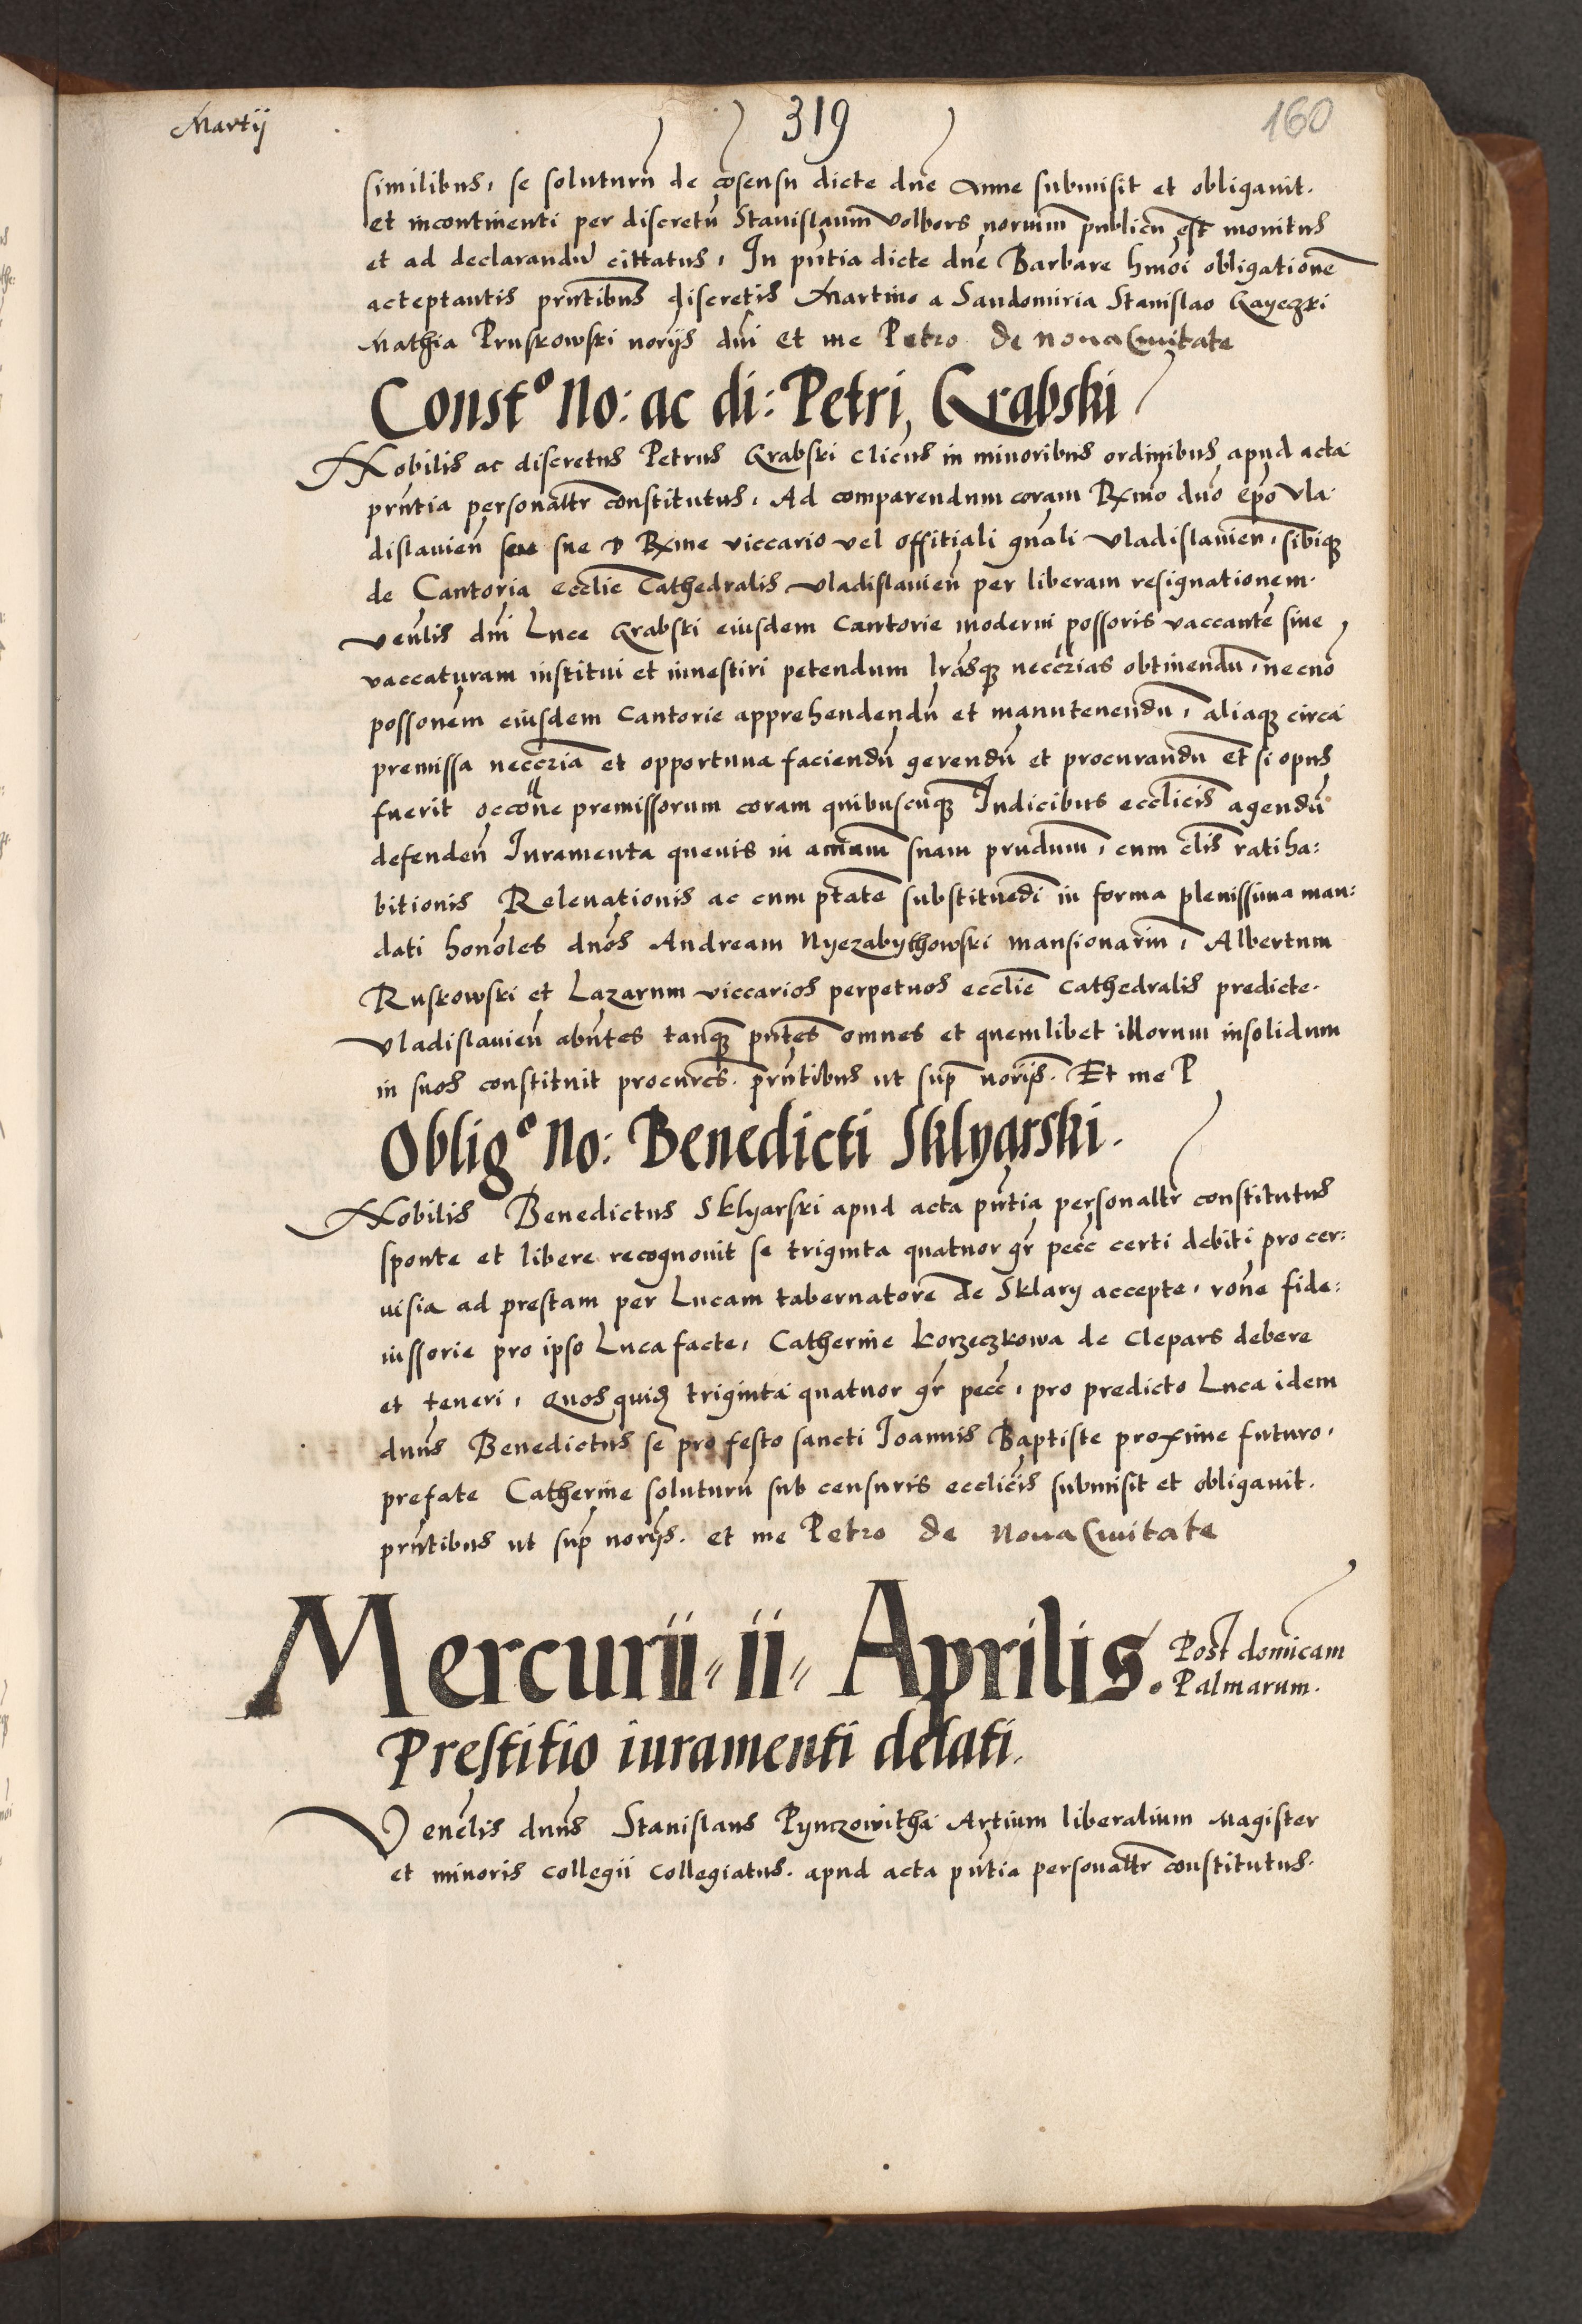 Martij
319
160
similibus, se soluturū de cōsensu dicte dne Anne submisit et obligavit.
et incontinenti per discretū Stanislaum Volbors noriūm publicū est monitus
et ad declarandū cittatus, In pn̄tia dicte dn̄e Barbare hmōi obligationē
acteptantis prn̄tibus discretis Martino a Sandomiria Stanislao Gayeczki
Mathia Pruskowski norijs dn̄i et me Petro de Nova Civitate
Constº No: ac di: Petri, Grabski
Nobilis ac discretus Petrus Grabski clicus in minoribus ordinibus apud acta
prn̄tia personalr̄ constitutus, Ad comparendum coram Rx̄mo dn̄o ep̄o Vla-
dislavien̄ sue D Rx̄me viccario vel offitiali gn̄ali Vladislavien̄, sibiq
de Cantoria ecclīe Cathedralis Vladislavien̄ per liberam resignationem.
Ven̄lis dn̄i Luce Grabski eiusdem Cantorie moderni possoris vaccantē sive
vaccaturam institui et investiri petendum lrasq neccrias obtinendū, necnō
possonem eiusdem Cantorie apprehendendū et manutenendū, aliaq circa
premissa neccria et opportuna faciendū gerendū et procurandū Et si opus
fuerit occōne premissorum coram quibuscūq Iudicibus ecclicis agendū
defenden̄ Iuramenta quevis in animam suam prn̄dum, cum clis ratiha:
bitionis Relevationis ac cum ptātē substituēdi in forma plenissima man:
dati honōles dn̄os Andream Nyezabythowski mansionariū, Albertum
Ruskowski et Lazarum viccarios perpetuos ecclīe Cathedralis predicte.
Vladislavien̄ abn̄tes tanq pn̄tes omnes et quemlibet illorum insolidum
in suos constituit procurēs. prn̄tibus ut sup norijs. Et me P
Obligº No: Benedicti Sklyarski.
Nobilis Benedictus Sklyarski apud acta pn̄tia personalr̄ constitutus
sponte et libere recognovit se triginta quatuor gr pecc certi debiti pro cer:
visia ad prestam per Lucam tabernatorē de Sklary accepte, rōne fide:
iussorie pro ipso Luca facte, Catherine Korzeczkowa de Clepars debere
et teneri, Quos quid triginta quatuor gr pecc, pro predicto Luca idem
dnn̄s Benedictus se pro festo sancti Ioannis Baptiste proxime futuro,
prefate Catherine soluturū sub censuris ecclicis submisit et obligavit.
prn̄tibus ut sup norijs. et me Petro de Nova Civitate
Mercurii ii Aprilis. Post domīcam
Palmarum.
Prestitio iuramenti delati.
Venēlis dnn̄s Stanislaus Pynczowitha Artium liberalium Magister
et minoris collegii Collegiatus. apud acta pn̄tia personalr̄ constitutus.